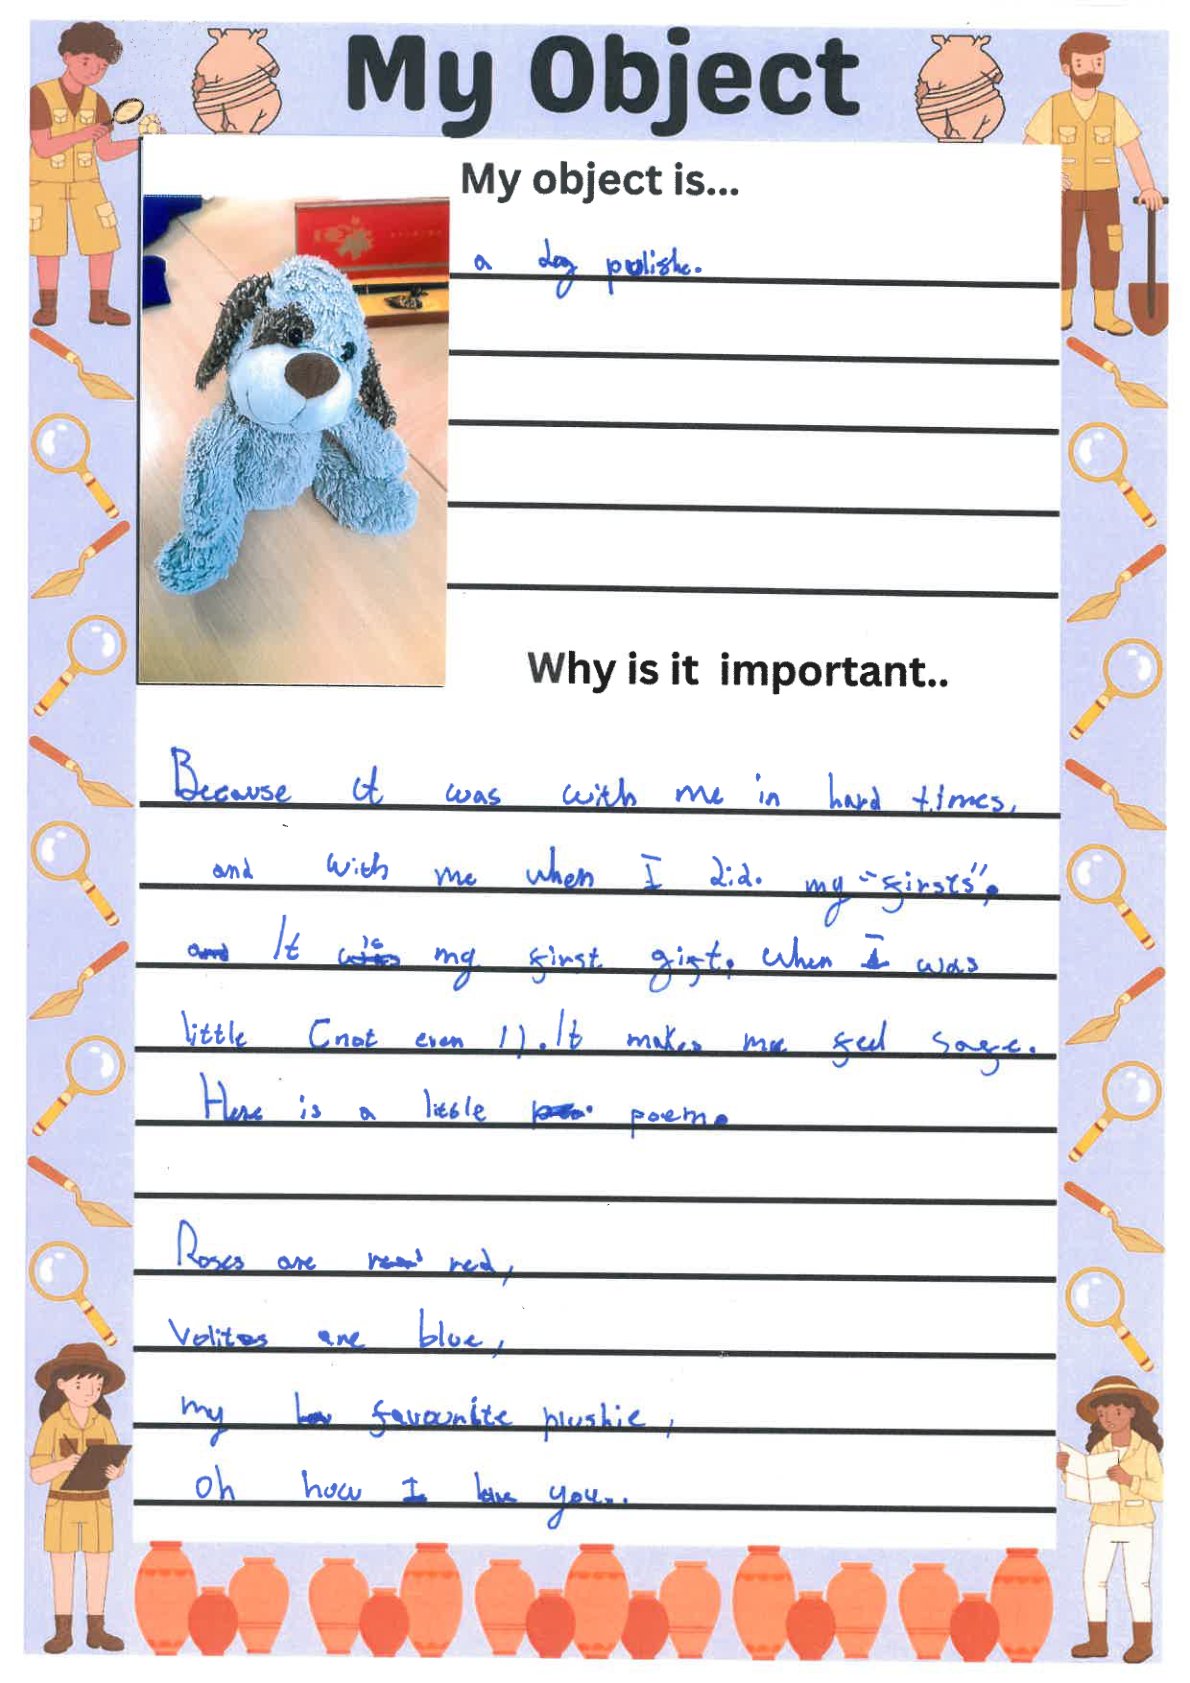 My Object
My object is...
a dog pulishe.
Why is it important..
Because it was with me in hard times,
and with me when I did. my "firsts",
It is my first gift, when I was
little (not even 1). It makes me feel safe.
Here is a little poem.
Roses are red,
Volites are blue,
my favourite plushie,
oh how I love you..